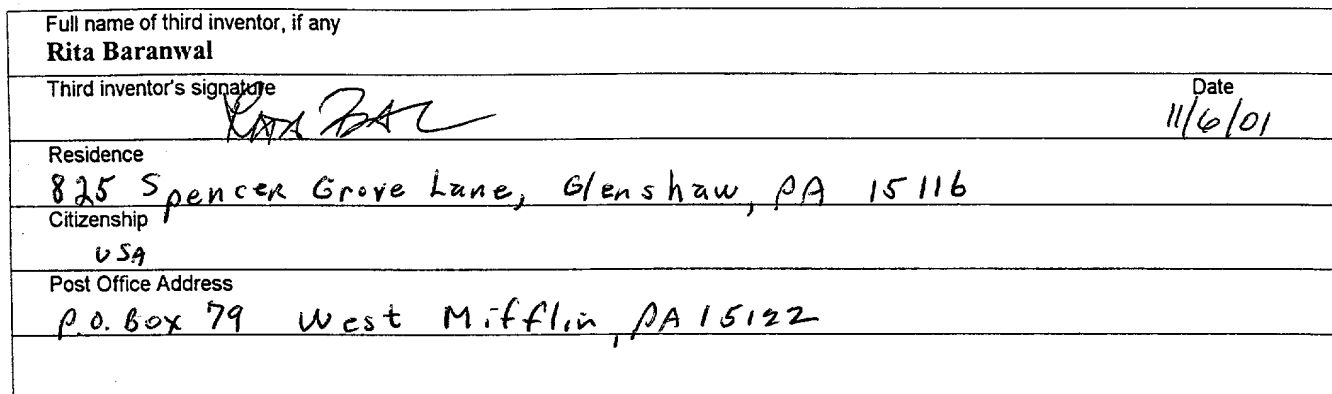 Full name of third inventor, if any
Rita Baranwal
Third inventor's signature Date
11/6/01
Residence
825 Spencer Grove Lane, Glenshaw, PA 15116
Citizenship
USA
Post Office Address
P.O. Box 79 West Mifflin, PA 15122